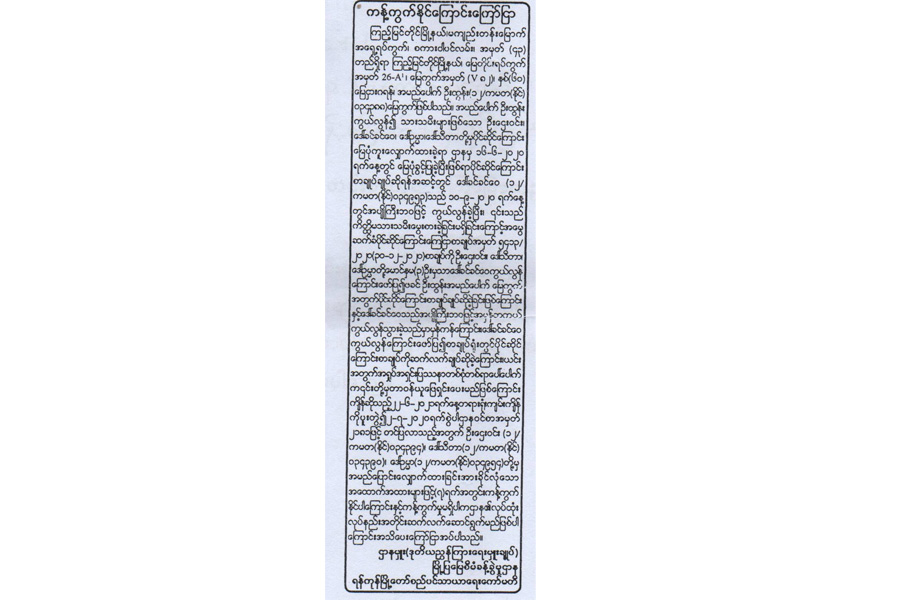 ကန့်ကွက်နိုင်ကြောင်းကြော်ငြာ
ကြည့်မြင်တိုင်မြို့နယ်၊မကျည်းတန်းမြောက်
အရှေ့ရပ်ကွက်၊ စကားဝါပင်လမ်း၊ အမှတ် (၄၃)
တည်ရှိရာ ကြည့်မြင်တိုင်မြို့နယ်၊ မြေတိုင်းရပ်ကွက်
အမှတ် 26-A¹၊ မြေကွက်အမှတ် (V ၈၂)၊ နှစ်(၆၀)
မြေငှားဂရန်၊ အမည်ပေါက် ဦးထွန်း(၁၂/ကမတ(နိုင်)
၀၃၄၃၈၈)မြေကွက်ဖြစ်ပါသည်။ အမည်ပေါက် ဦးထွန်း
ကွယ်လွန်၍ သားသမီးများဖြစ်သော ဦးဌေးဝင်း၊
ဒေါ်ခင်ခင်ဝေ၊ ဒေါ်ဥမ္မာ၊ဒေါ်သီတာတို့မှပိုင်ဆိုင်ကြောင်း
မြေပုံကူးလျှောက်ထားခဲ့ရာ ဌာနမှ ၁၆-၆-၂၀၂၀
ရက်နေ့တွင် မြေပုံခွင့်ပြုခဲ့ပြီးဖြစ်ရာပိုင်ဆိုင်ကြောင်း
စာချုပ်ချုပ်ဆိုရန်အဆင့်တွင် ဒေါ်ခင်ခင်ဝေ (၁၂/
ကမတ(နိုင်)၀၃၄၉၅၃)သည် ၁၀-၉-၂၀၂၀ ရက်နေ့
တွင်အပျိုကြီးဘဝဖြင့် ကွယ်လွန်ခဲ့ပြီး၊ ၎င်းသည်
ကိတ္တိမသားသမီးမွေးစားခဲ့ခြင်းမရှိခြင်းကြောင့်အမွေ
ဆက်ခံပိုင်ဆိုင်ကြောင်းကြေငြာစာချုပ်အမှတ် ၅၄၁၃/
၂၀၂၀(၃၀-၁၂-၂၀၂၀)စာချုပ်ကိုဦးဌေးဝင်း၊ ဒေါ်သီတာ၊
ဒေါ်ဥမ္မာတို့မောင်နှမ(၃)ဦးမှသာဒေါ်ခင်ခင်ဝေကွယ်လွန်
ကြောင်းဖော်ပြ၍ဖခင် ဦးထွန်းအမည်ပေါက် မြေကွက်
အတွက်ပိုင်ဆိုင်ကြောင်းစာချုပ်ချုပ်ဆိုခဲ့ခြင်းဖြစ်ကြောင်း
နှင့်ဒေါ်ခင်ခင်ဝေသည်အပျိုကြီးဘဝဖြင့်အမှန်တကယ်
ကွယ်လွန်သွားခဲ့သည်မှာမှန်ကန်ကြောင်းဒေါ်ခင်ခင်ဝေ
ကွယ်လွန်ကြောင်းဖော်ပြ၍စာချုပ်ရုံးတွင်ပိုင်ဆိုင်
ကြောင်းစာချုပ်ကိုဆက်လက်ချုပ်ဆိုခဲ့ကြောင်း၊ယင်း
အတွက်အရှုပ်အရှင်းပြဿနာတစ်စုံတစ်ရာပေါ်ပေါက်
က၎င်းတို့မှတာဝန်ယူဖြေရှင်းပေးမည်ဖြစ်ကြောင်း
ကျိန်ဆိုသည့်၂၂-၆-၂၀၂၁ရက်နေ့တရားရုံးကျမ်းကျိန်
ကိုပူးတွဲ၍၂-၇-၂၀၂၀ရက်စွဲပါဌာနဝင်စာအမှတ်
၂၁၈၁ဖြင့် တင်ပြလာသည့်အတွက် ဦးဌေးဝင်း (၁၂/
ကမတ(နိုင်)၀၃၄၃၉၄)၊ ဒေါ်သီတာ(၁၂/ကမတ(နိုင်)
၀၃၄၃၉၀)၊ ဒေါ်ဥမ္မာ(၁၂/ကမတ(နိုင်)၀၃၄၉၅၄)တို့မှ
အမည်ပြောင်းလျှောက်ထားခြင်းအားခိုင်လုံသော
အထောက်အထားများဖြင့်(၇)ရက်အတွင်းကန့်ကွက်
နိုင်ပါကြောင်းနှင့်ကန့်ကွက်မှုမရှိပါကဌာန၏လုပ်ထုံး
လုပ်နည်းအတိုင်းဆက်လက်ဆောင်ရွက်မည်ဖြစ်ပါ
ကြောင်းအသိပေးကြော်ငြာအပ်ပါသည်။
ဌာနမှူး(ဒုတိယညွှန်ကြားရေးမှူးချုပ်)
မြို့ပြမြေစီမံခန့်ခွဲမှုဌာန
ရန်ကုန်မြို့တော်စည်ပင်သာယာရေးကော်မတီ